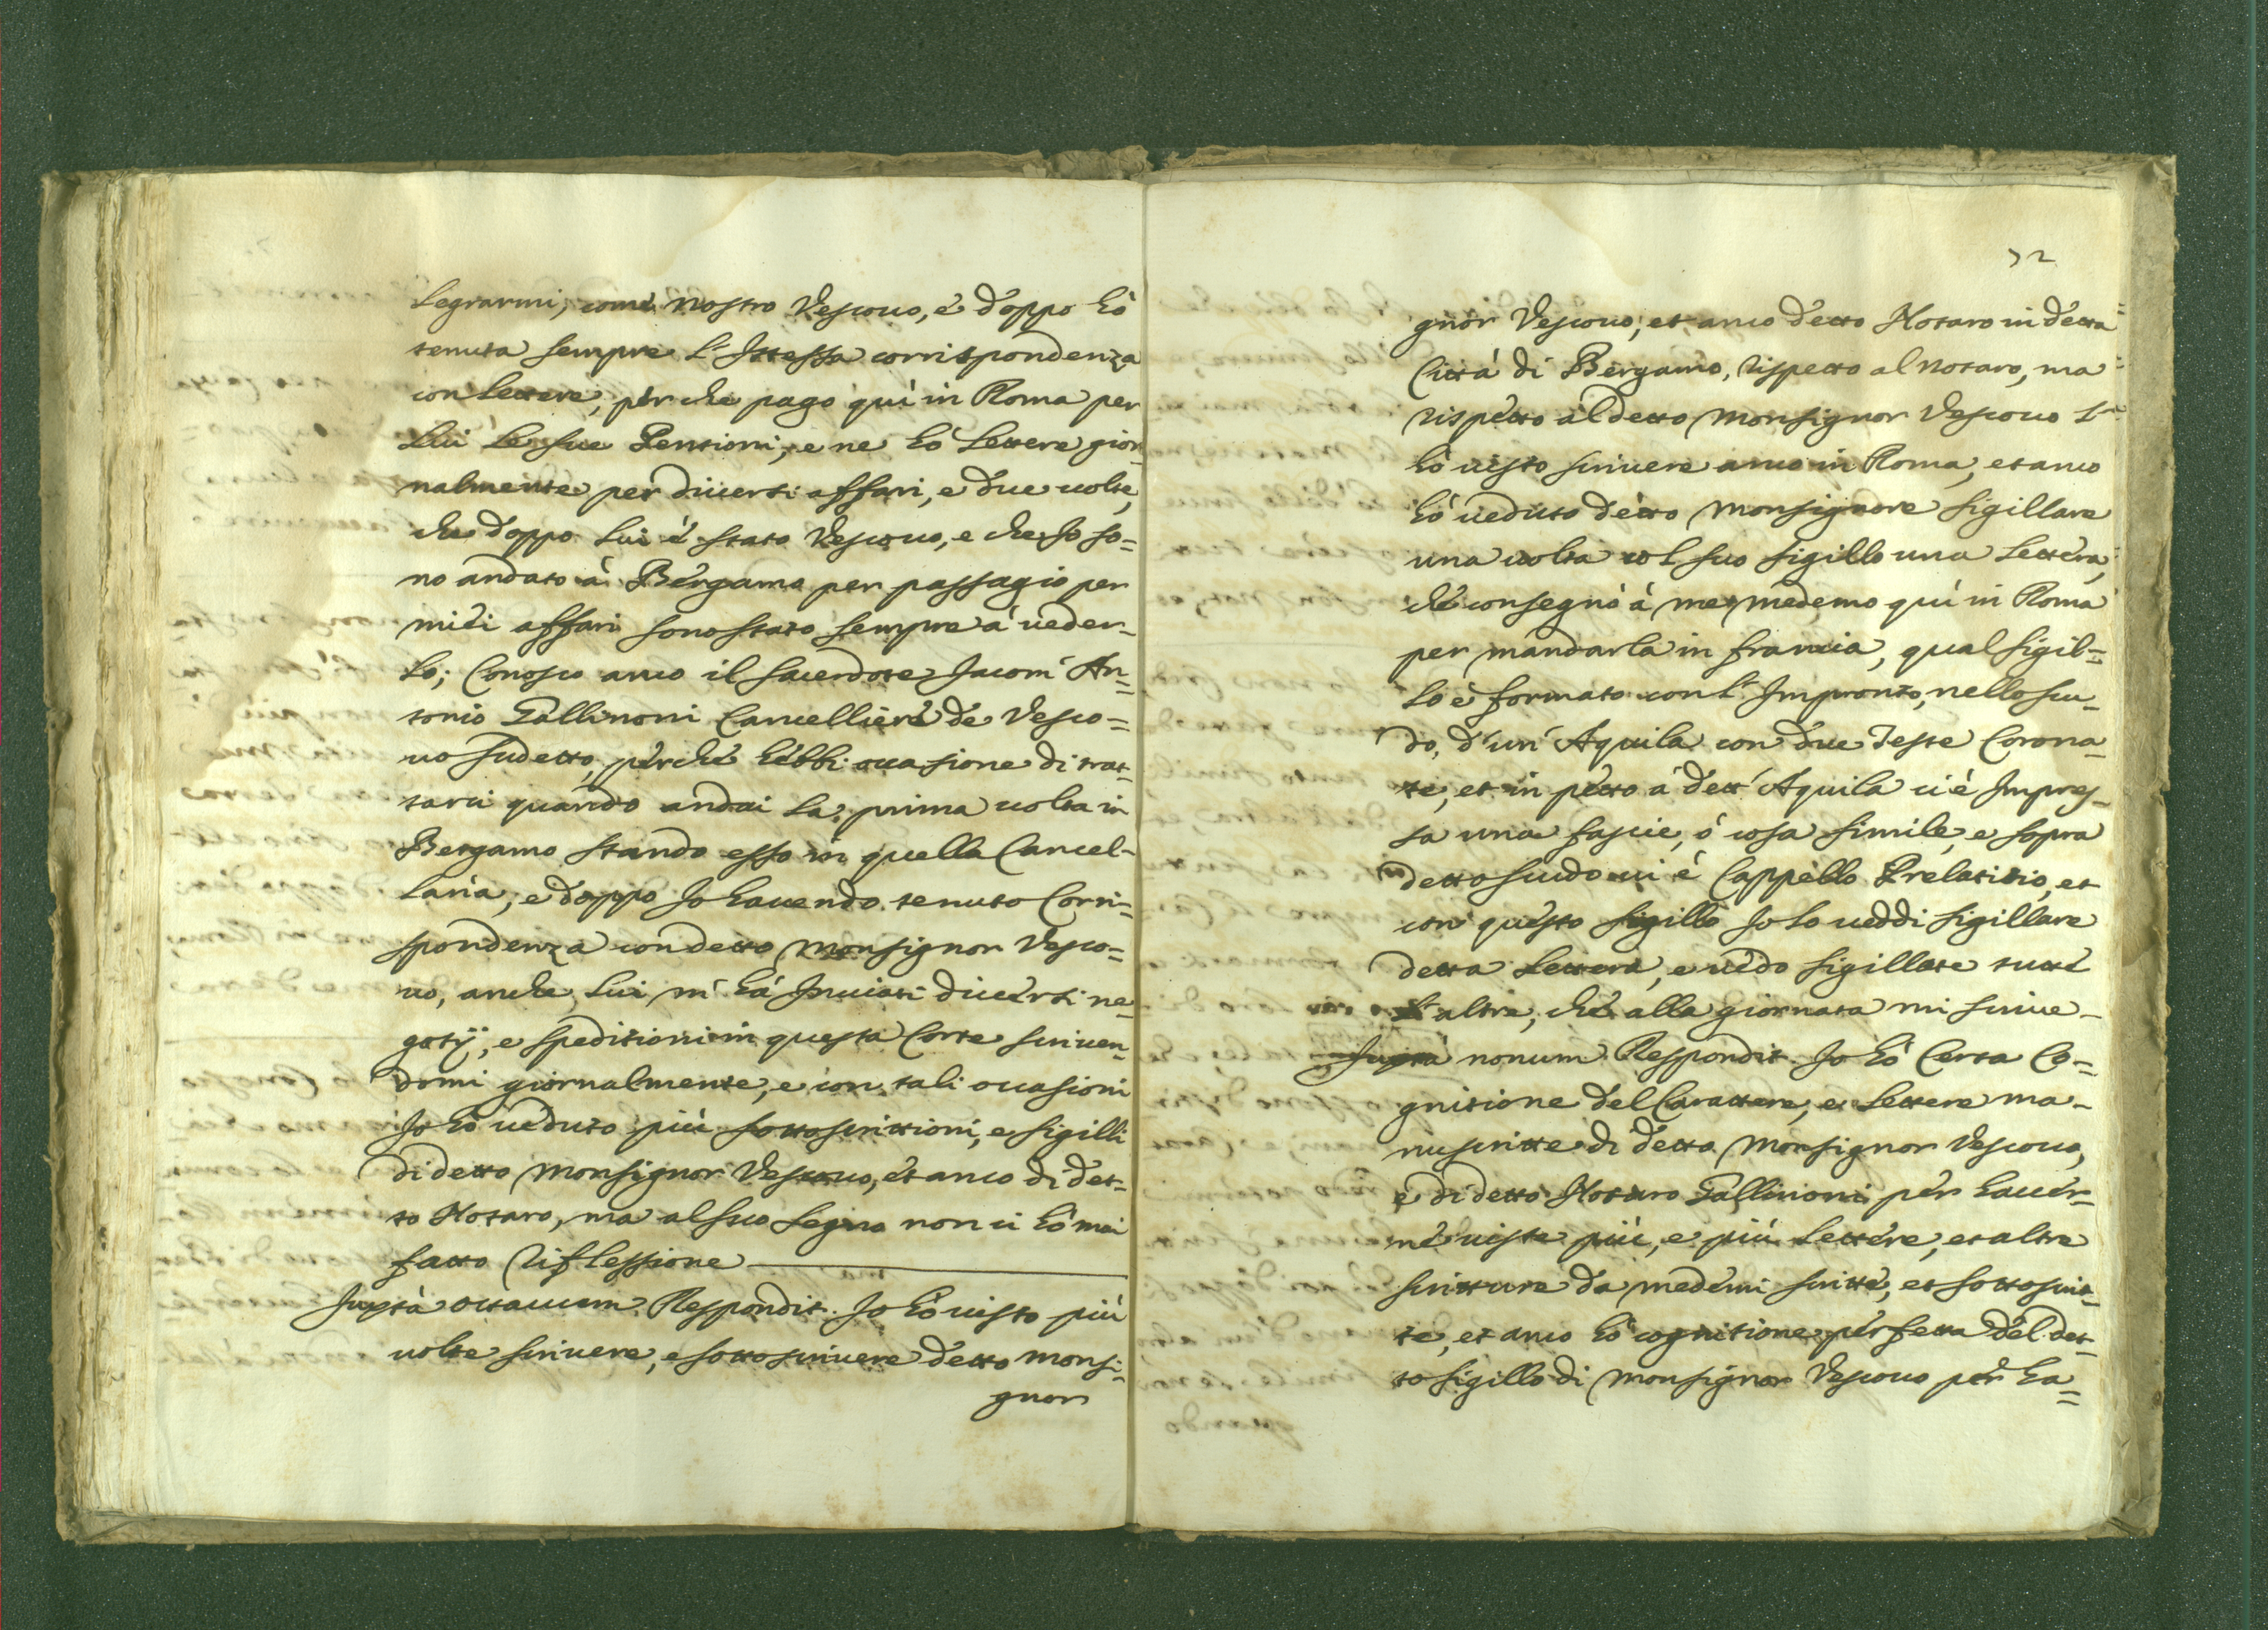 legrarmi, come nostro Vescouo, è doppo hò
tenuta sempre l'Istessa corrispondenza
con lettere, perche pago quì in Roma per
lui le sue Pensioni, e ne hò lettere gior-
nalmente per diuersi affari, e due uolte,
che doppo lui è stato Vescouo, e che Io so=
no andato à Bergamo per passagio per
miei affari sono stato sempre à ueder-
lo; Conosco anco il sacerdote Iacom' An=
tonio Gallinoni Cancelliere de Vesco=
uo sudetto, perche hebbi occasione di trat-
tarci quando andai la prima uolta in
Bergamo stando esso in quella Cancel-
laria, e doppo Io hauendo tenuto Corri=
spondenza con detto Monsignor Vesco=
uo, anche lui m' hà Inuiati diuersi ne=
gotÿ, e speditioni in questa Corte scriuen=
domi giornalmente, e con tali occasioni
Io hò ueduto più sottoscrittioni, e sigilli
di detto Monsignor Vescouo, et anco di det-
to Notaro, ma al suo segno non ci hò mai
fatto riflessione
Juxtà octauum Respondit. Io hò uisto più
uolte scriuere, e sottoscriuere detto Monsi=
gnor
72
gnor Vescouo, et anco detto Notaro in detta
Città di Bergamo, rispetto al Notaro, ma
rispetto al detto Monsignor Vescouo l'
hò uisto scriuere anco in Roma, et anco
hò ueduto detto Monsignore sigillare
una uolta col suo sigillo una lettera,
che consegnò à me medemo quì in Roma
per mandarla in francia, qual sigil=
lo è formato con l' Impronto, nello scu-
do, d'un' Aquila con due Teste Corona-
te, et in petto à dett' Aquila ui è Impres-
sa una fascie, ò cosa simile, e sopra
detto scudo ui è Cappello Prelatitio, et
con questo sigillo Io lo ueddi sigillare
detta lettera, e uedo sigillate tutte
l' altre, che alla giornata mi scriue-
Juxtà nonum Respondit. Io hò Certa Co-
gnitione del Carattere, e lettere ma-
nuscritte di detto Monsignor Vescouo,
e di detto Notaro Gallinoni per hauer-
ne uiste più, e più lettere, et altre
scritture da medemi scritte, et sottoscrit-
te, et anco hò cognitione perfetta del det-
to sigillo di Monsignor Vescouo per ha=